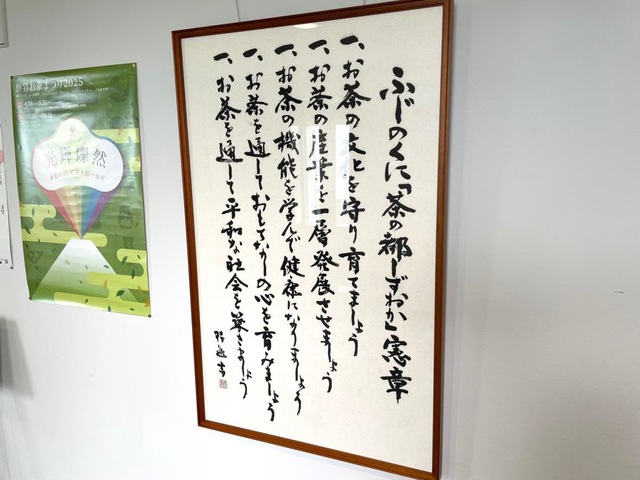 ふじのくに「茶の都しずおか」憲章
一、お茶の文化を守り育てましょう
一、お茶の産業を一層発展させましょう
一、お茶の機能を学んで健康になりましょう
一、お茶を通しておもてなしの心を育みましょう
一、お茶を通して平和な社会を築きましょう
世界お茶まつり2025
光輝燦然